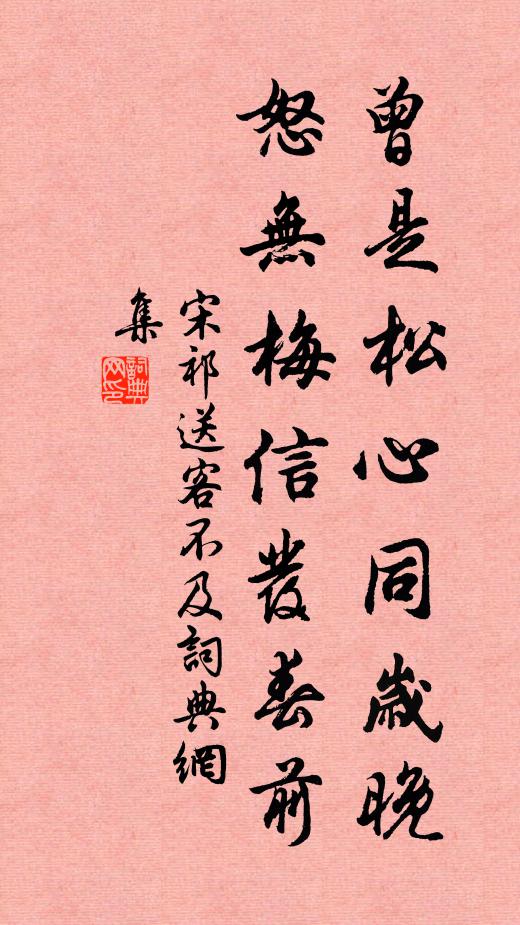 曾是松心同歲晚
怒無梅信發春前
宋祁送客不及詞典網
集
詞典
网印